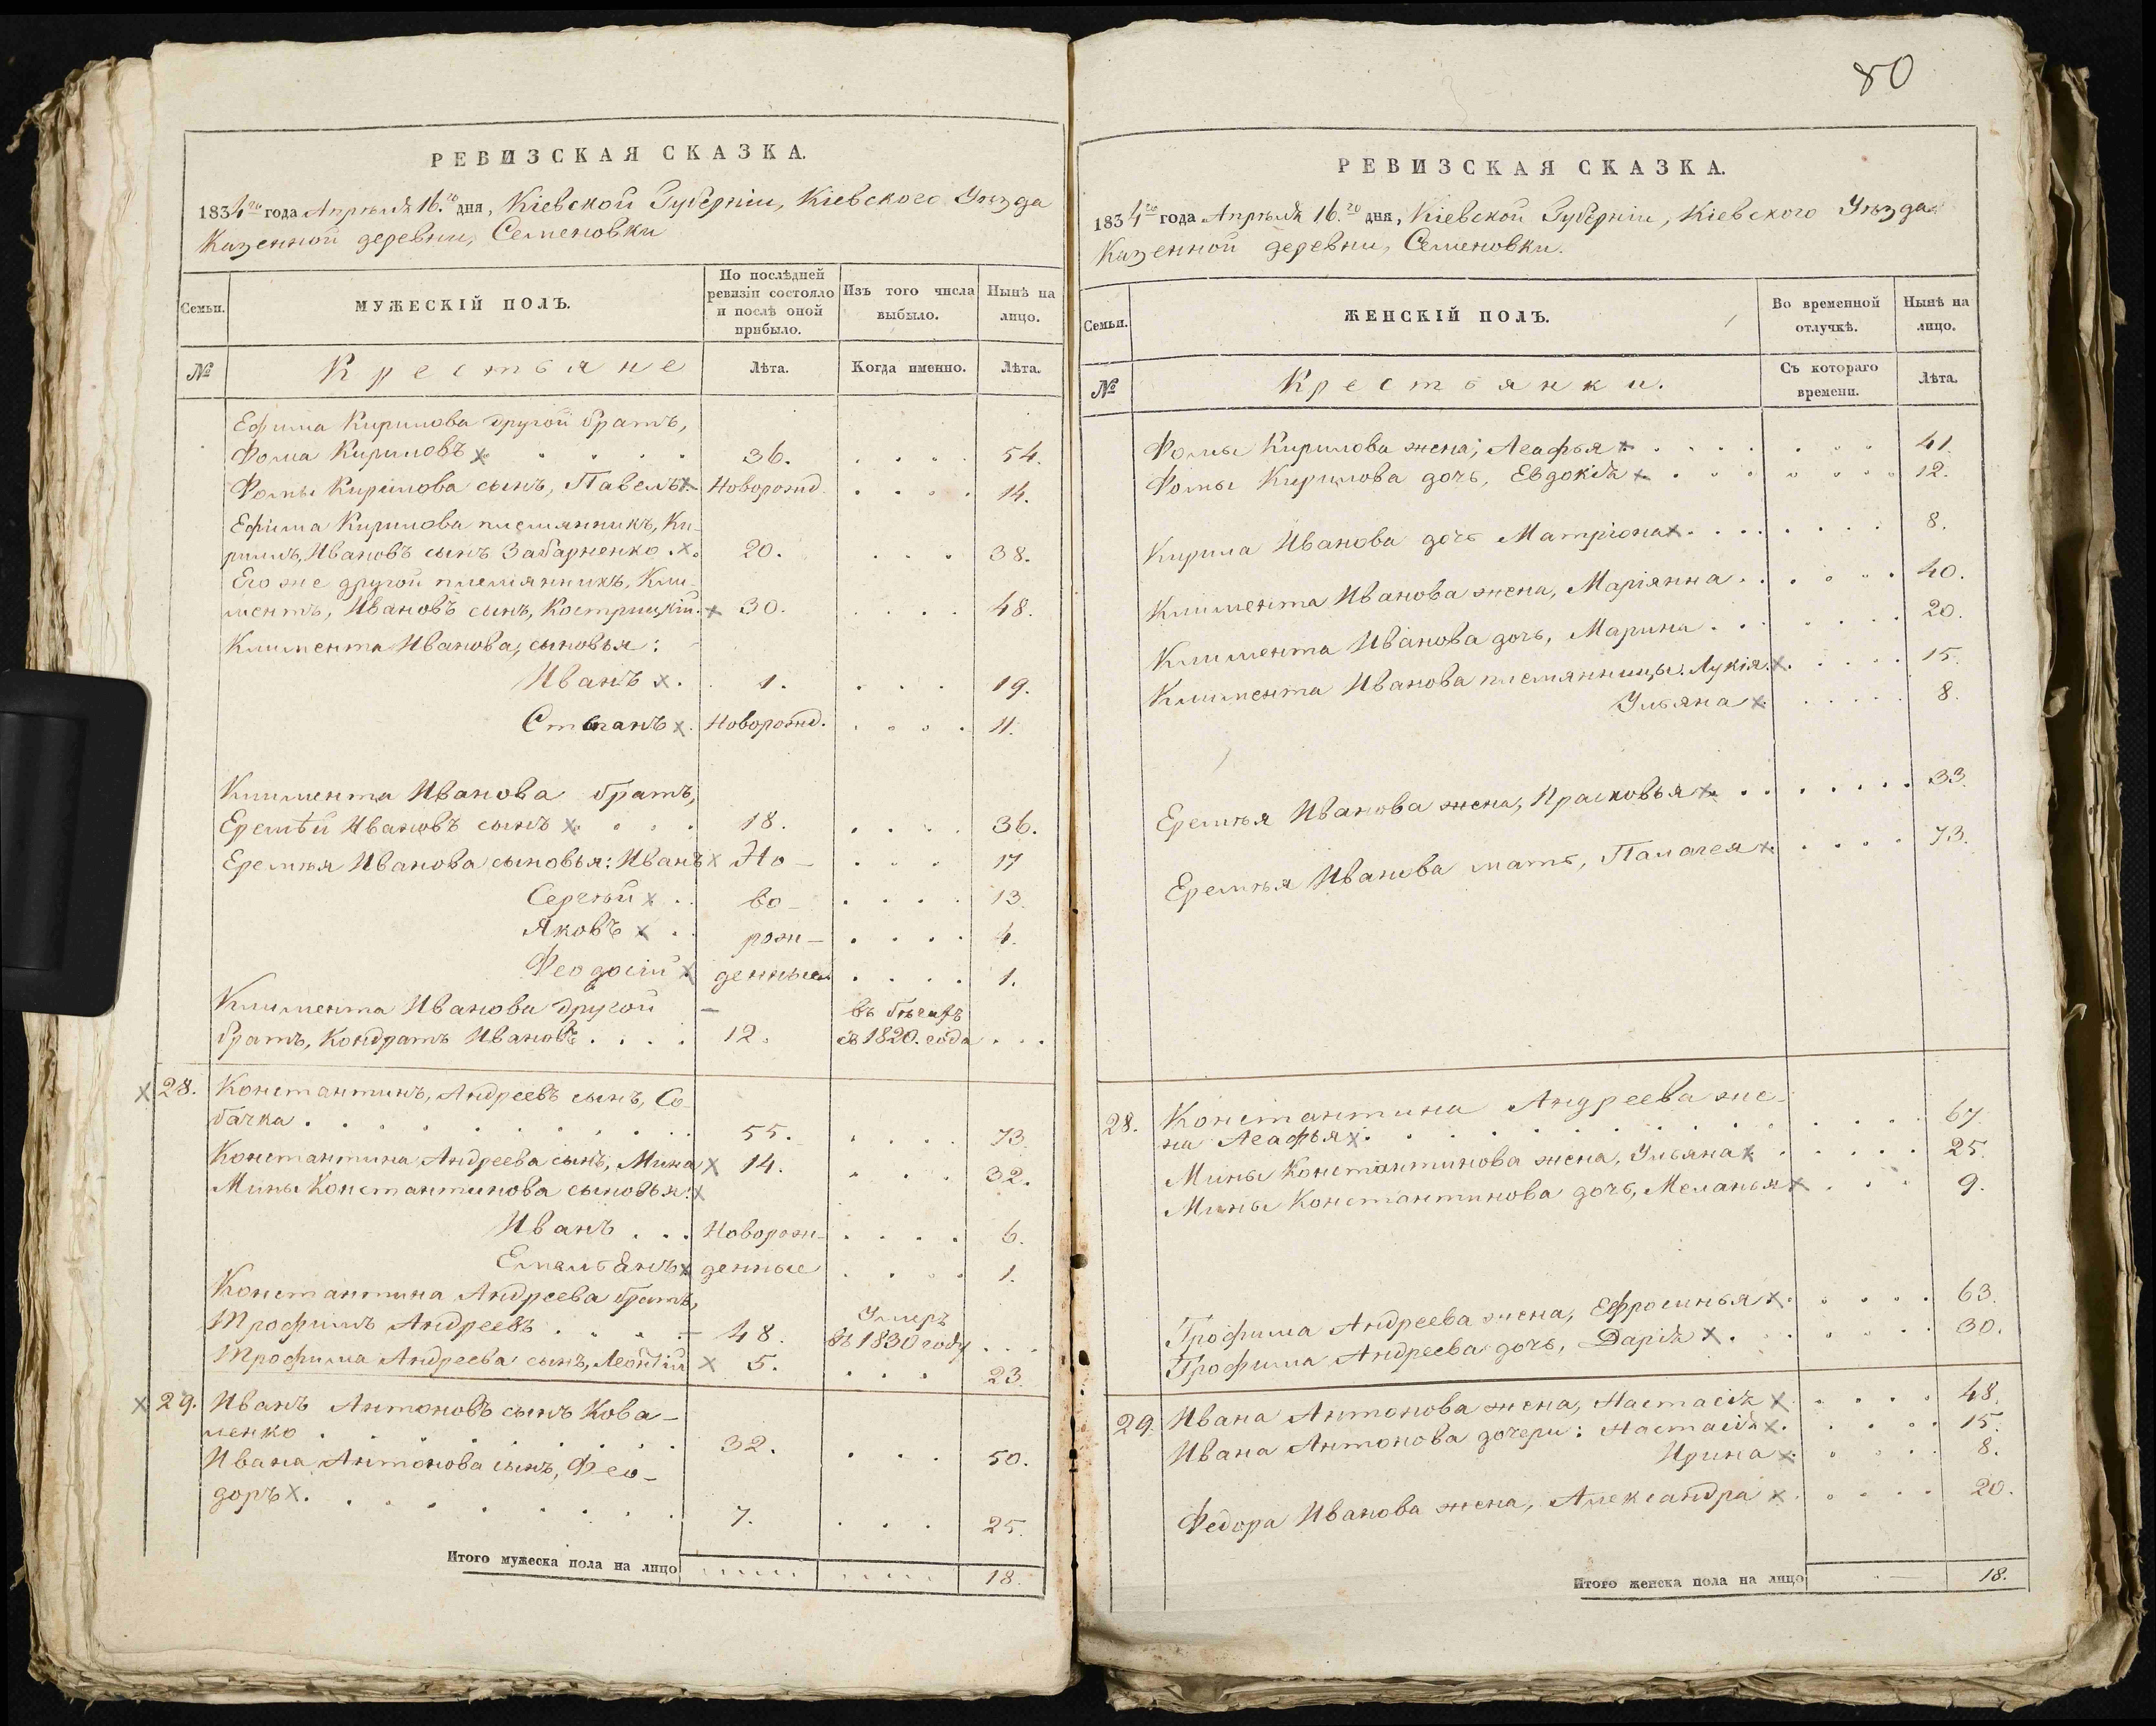 РЕВИЗСКАЯ СКАЗКА.
1834го года Апрѣля 16.го дня, Кіевской Губерніи, Кіевского Уѣзда
Казенной деревни, Семеновки
Семьи.
МУЖЕСКІЙ ПОЛЪ.
По послѣдней ревизіи состояло и послѣ оной прибыло.
Изъ того числа выбыло.
Нынѣ на лицо.
№ Крестьяне Лѣта. Когда именно. Лѣта.
Ефима Кирилова другой братъ,
Фома Кириловъ x . . . . 36. . . . . 54.
Фомы Кирилова сынъ, Павелъ x Новорожд. . . . . 14.
Ефима Кирилова племянникъ, Ки-
рилъ, Ивановъ сынъ Забарненко . x. 20. . . . 38.
Его же другой племянникъ, Кли-
ментъ, Ивановъ сынъ, Кострицкій. x 30. . . . . 48.
Климента Иванова, сыновья:
Иванъ x. 1. . . . . 19.
Степанъ x. Новорожд. . . . . 11.
Климента Иванова братъ,
Еремѣй Ивановъ сынъ x . . . 18. . . . . 36.
Еремѣя Иванова сыновья: Иванъ x Но- . . . 17
Сергѣй x . . во- . . . . 13.
Яковъ x . . рож- . . . . 4.
Феодосій x денные . . . . 1.
Климента Иванова другой - въ бѣгахъ
братъ, Кондратъ Ивановъ . . . . 12. съ 1820. года . . .
x 28. Константинъ, Андреевъ сынъ, Со-
бачка . . . . . . . . . . 55. . . . . 73.
Константина Андреева сынъ, Мина x 14. . . . 32.
Мины Константинова сыновья: x
Иванъ . . . Новорож- . . . . 6.
Емельянъ x денные . . . . 1.
Константина Андреева братъ, Умеръ
Трофимъ Андреевъ . . . . - 48. въ 1830 году . . .
Трофима Андреева сынъ, Леонтій x 5. . . . 23.
x 29. Иванъ Антоновъ сынъ Кова-
ленко . . . . . . . . . 32. . . . 50.
Ивана Антонова сынъ, Фео-
доръ x. . . . . . . . . 7. . . . 25.
Итого мужеска пола на лицо 18.
80
РЕВИЗСКАЯ СКАЗКА.
1834го года Апрѣля 16.го дня, Кіевской Губерніи, Кіевского Уѣзда
Казенной деревни, Семеновки.
Семьи.
ЖЕНСКІЙ ПОЛЪ.
Во временной отлучкѣ.
Нынѣ на лицо.
№ Крестьянки. Съ котораго времени. Лѣта.
Фомы Кирилова жена, Агафья x . . . . . . . 41.
Фомы Кирилова дочь, Евдокія x . . . . . . . 12.
Кирила Иванова дочь Матріона x . . . . . . . 8.
Климента Иванова жена, Маріянна . . . . . . 40.
Климента Иванова дочь, Марина . . . . . . 20.
Климента Иванова племянницы: Лукія. x. . . . . 15.
Ульяна x . . . . . 8.
Еремѣя Иванова жена, Прасковья x. . . . . . . 33.
Еремѣя Иванова мать, Палагея x. . . . . 73.
28. Константина Андреева же-
на Агафья x. . . . . . . . . . . 67.
Мины Константинова жена, Ульяна x . . . . . 25.
Мины Константинова дочь, Меланья x . . . 9.
Трофима Андреева жена, Ефросинья x. . . . . 63.
Трофима Андреева дочь, Дарія x . . . . . . 30.
29. Ивана Антонова жена, Настасія x . . . . 48.
Ивана Антонова дочери: Настасія x. . . . . 15.
Ирина x . . . . 8.
Федора Иванова жена, Александра x . . . . 20.
Итого женска пола на лицо 18.